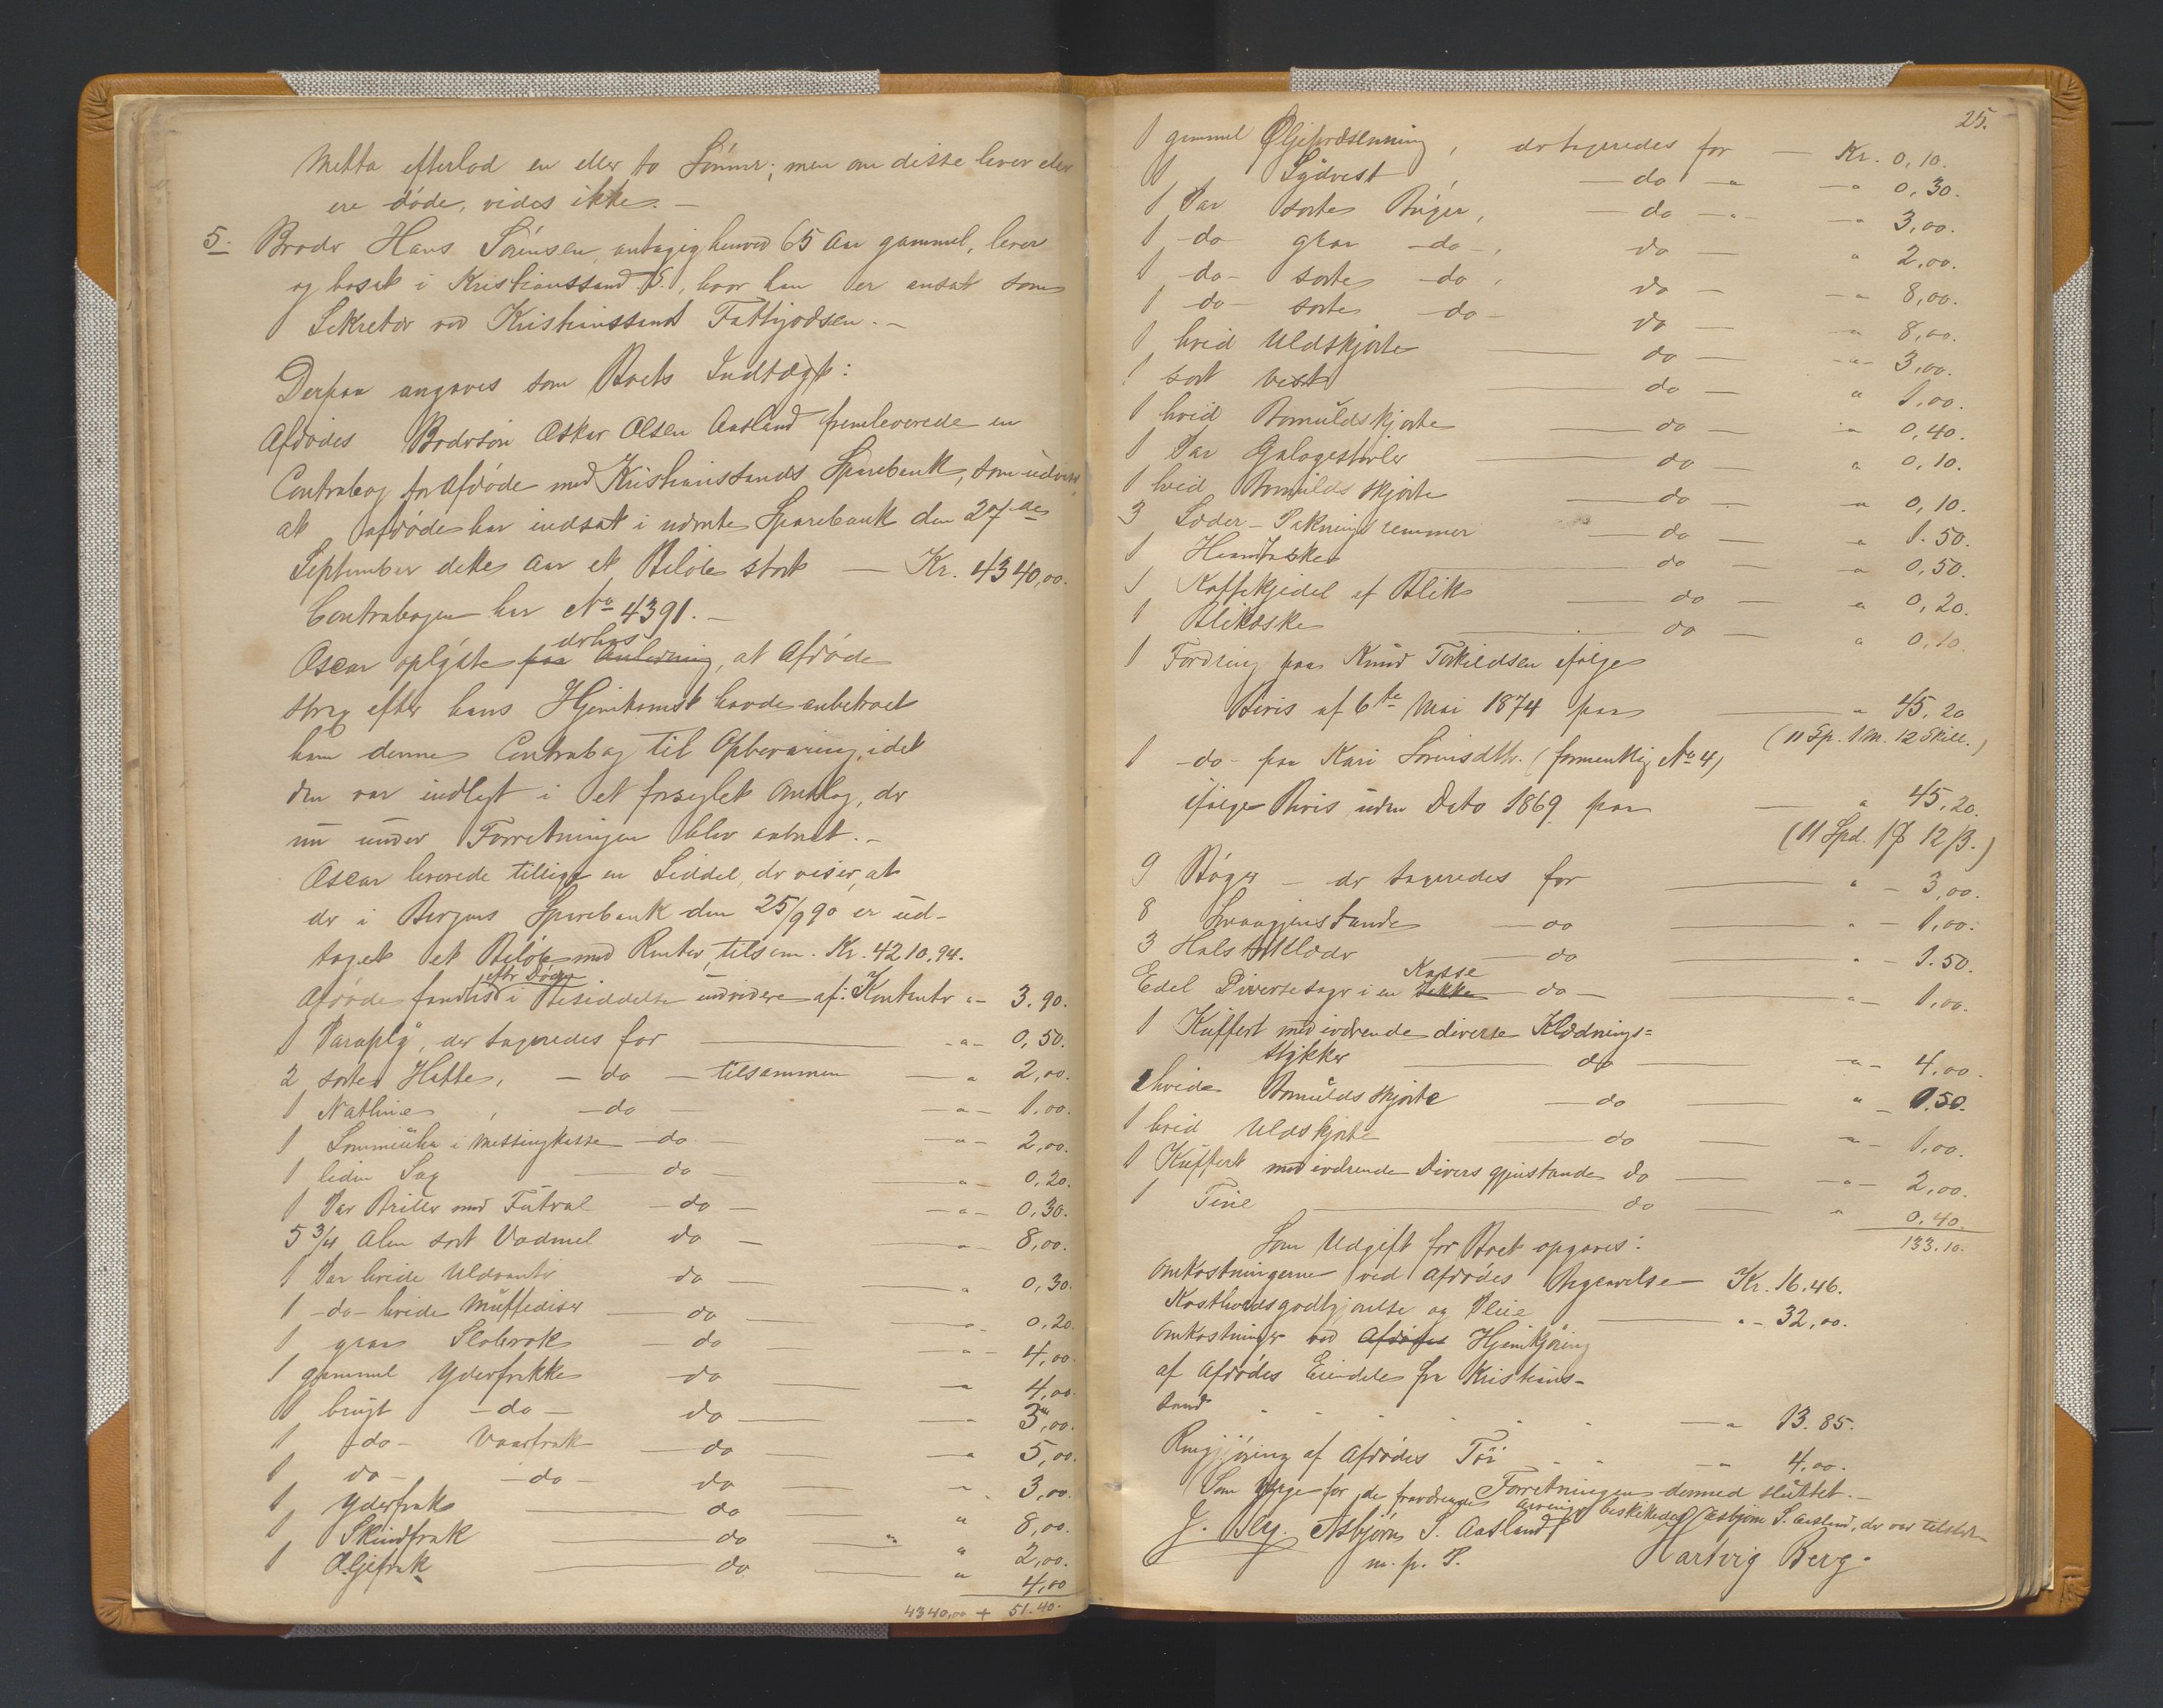 Mætta efterlod en eller to Sønner; men om disse lever eller
ere døde, vides ikke. —
5. Broder Hans Sörensen, antagelig henved 65 Aar gammel, lever
og bosat i Kristianssand S., hvor han er ansat som
Sekretær ved Kristianssand Fattigvæsen. —
Derpaa angaves som Boets Indtægt:
Afdödes Brodersön Oskar Olsen Aasland fremleverede en
Contrabog for Afdöde med Kristianssands Sparebank, som udviser,
at afdöde har indsat i nævnte Sparebank den 27de
September dette Aar et Belöb stort — Kr. 4340,00.
Contrabogen har No 4391. —
Oscar oplyste paa Anledning derhos, at Afdöde
strax efter hans Hjemkomst havde anbetroet
ham denne Contrabog til Opbevaring, idet
den var indlagt i et forseglet Omslag, der
nu under Forretningen blev aabnet. —
Oscar leverede tillige en Seddel, der viser, at
der i Bergens Sparebank den 25/9 90 er ud-
taget et Belöb med Renter, tilsam. Kr. 4210,94.
Afdöde fandtes efter Döden i Besiddelse endvidere af: Kontanter " - 3.90.
1 Paraply, der taxeredes for — " - 0,50.
2 sorte Hatte, — do — tilsammen — " 2,00.
1 Nathue, — do — " - 1,00.
1 Lommeuhr i Messingkasse — do — " - 2,00.
1 liden Sag — do — " - 0,20.
1 Par Briller med Futral — do — " - 0,30.
5 3/4 Alen sort Vadmel do — " - 8,00.
1 Par hvide Uldvanter do — " 0,30.
1 - do - hvide Muffediser — do — " 0,20.
1 graa Slobrok — do — " - 4,00.
1 gammel Yderfrakke do — " 4,00.
1 brugt - do - do — " 3,00.
1 do - Vaarfrak — do — " 5,00.
1 do - - do - do — " 3,00.
1 Yderfrak — do — " 8,00.
1 Skindfrak — do — " 2,00.
1 Oljefrak — do — " 4,00
4340,00 + 51.40.
25.
1 gammel Oljepræsenning, der taxeredes for — Kr. 0,10.
1 Sydvest, — do — " — " 0,30.
1 Par sorte Buxer, — do — " — " 3,00.
1 do graa - do -, do — " 2,00.
1 do - sorte - do, do — " 8,00.
1 do - sorte - do - do — " 8,00.
1 hvid Uldskjorte — do — " 3,00.
1 sort Vest — do — " 1,00.
1 hvid Bomuldskjorte — do — " 0,40.
1 Par Galogestövler — do — " 0,10.
1 hvid Bomulds skjorte — do — " 0,10.
3 Læder-Pakningsremmer — do — " 1.50.
1 Haandtaske — do — " 0,50.
1 Kaffekjedel af Blik — do — " 0,20.
1 Blikæske — do — " 0,10.
1 Fordring paa Knud Torkildsen ifølge
Bevis af 6te Mai 1874 paa — " 45,20
(11 Sp. 1 M. 12 Skill.)
1 - do - paa Kari Sörensdtr. (formentlig No 4)
ifölge Bevis uden Dato 1869 paa — " 45,20.
(11 Spd. 1 ₰ 12 ß.)
9 Böger — der taxeredes for — " - 3,00.
8 Smaagjenstande — do — " - 1,00.
3 Halstörklæder — do — " - 1.50.
Endel Diversesager i en Sække Kasse — do — " - 1,00.
1 Kuffert med iværende diverse Klædnings=
stykker — do — " - 4,00.
2 hvide Bomulds skjorte — do — " - 1.50.
1 hvid Uldskjorte — do — " - 1,00.
1 Kuffert med iværende Divers gjenstande do — " - 2,00.
1 Tine — do — " 0,40.
133.10.
Som Udgift for Boet opgaves:
Omkostningerne ved Afdödes Begravelse — Kr. 16.46.
Kostholdsgodtgjörelse og Pleie — " - 32,00.
Omkostninger ved Afdödes Hjemkjöring
af Afdödes Eiendele fra Kristians-
sand — " 13.85.
Rengjöring af Afdödes Töi — " 4,00.
Forretningen dermed sluttet. —
Som Værge for de fraværende Arvinger beskikkedes Asbjörn S. Aasland, der var tilstede
J. Berg. Asbjörn S. Aasland Hartvig Berg.
m. p. P.